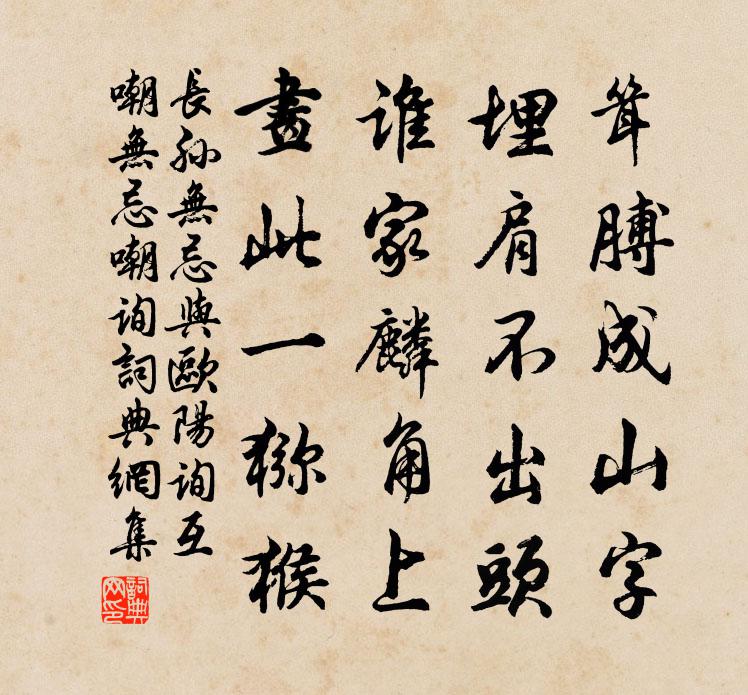 耸膊成山字
埋肩不出頭
誰家麟角上
畫此一獼猴
長孫無忌與歐陽詢互
嘲無忌嘲詢詞典網集
詞典
网印